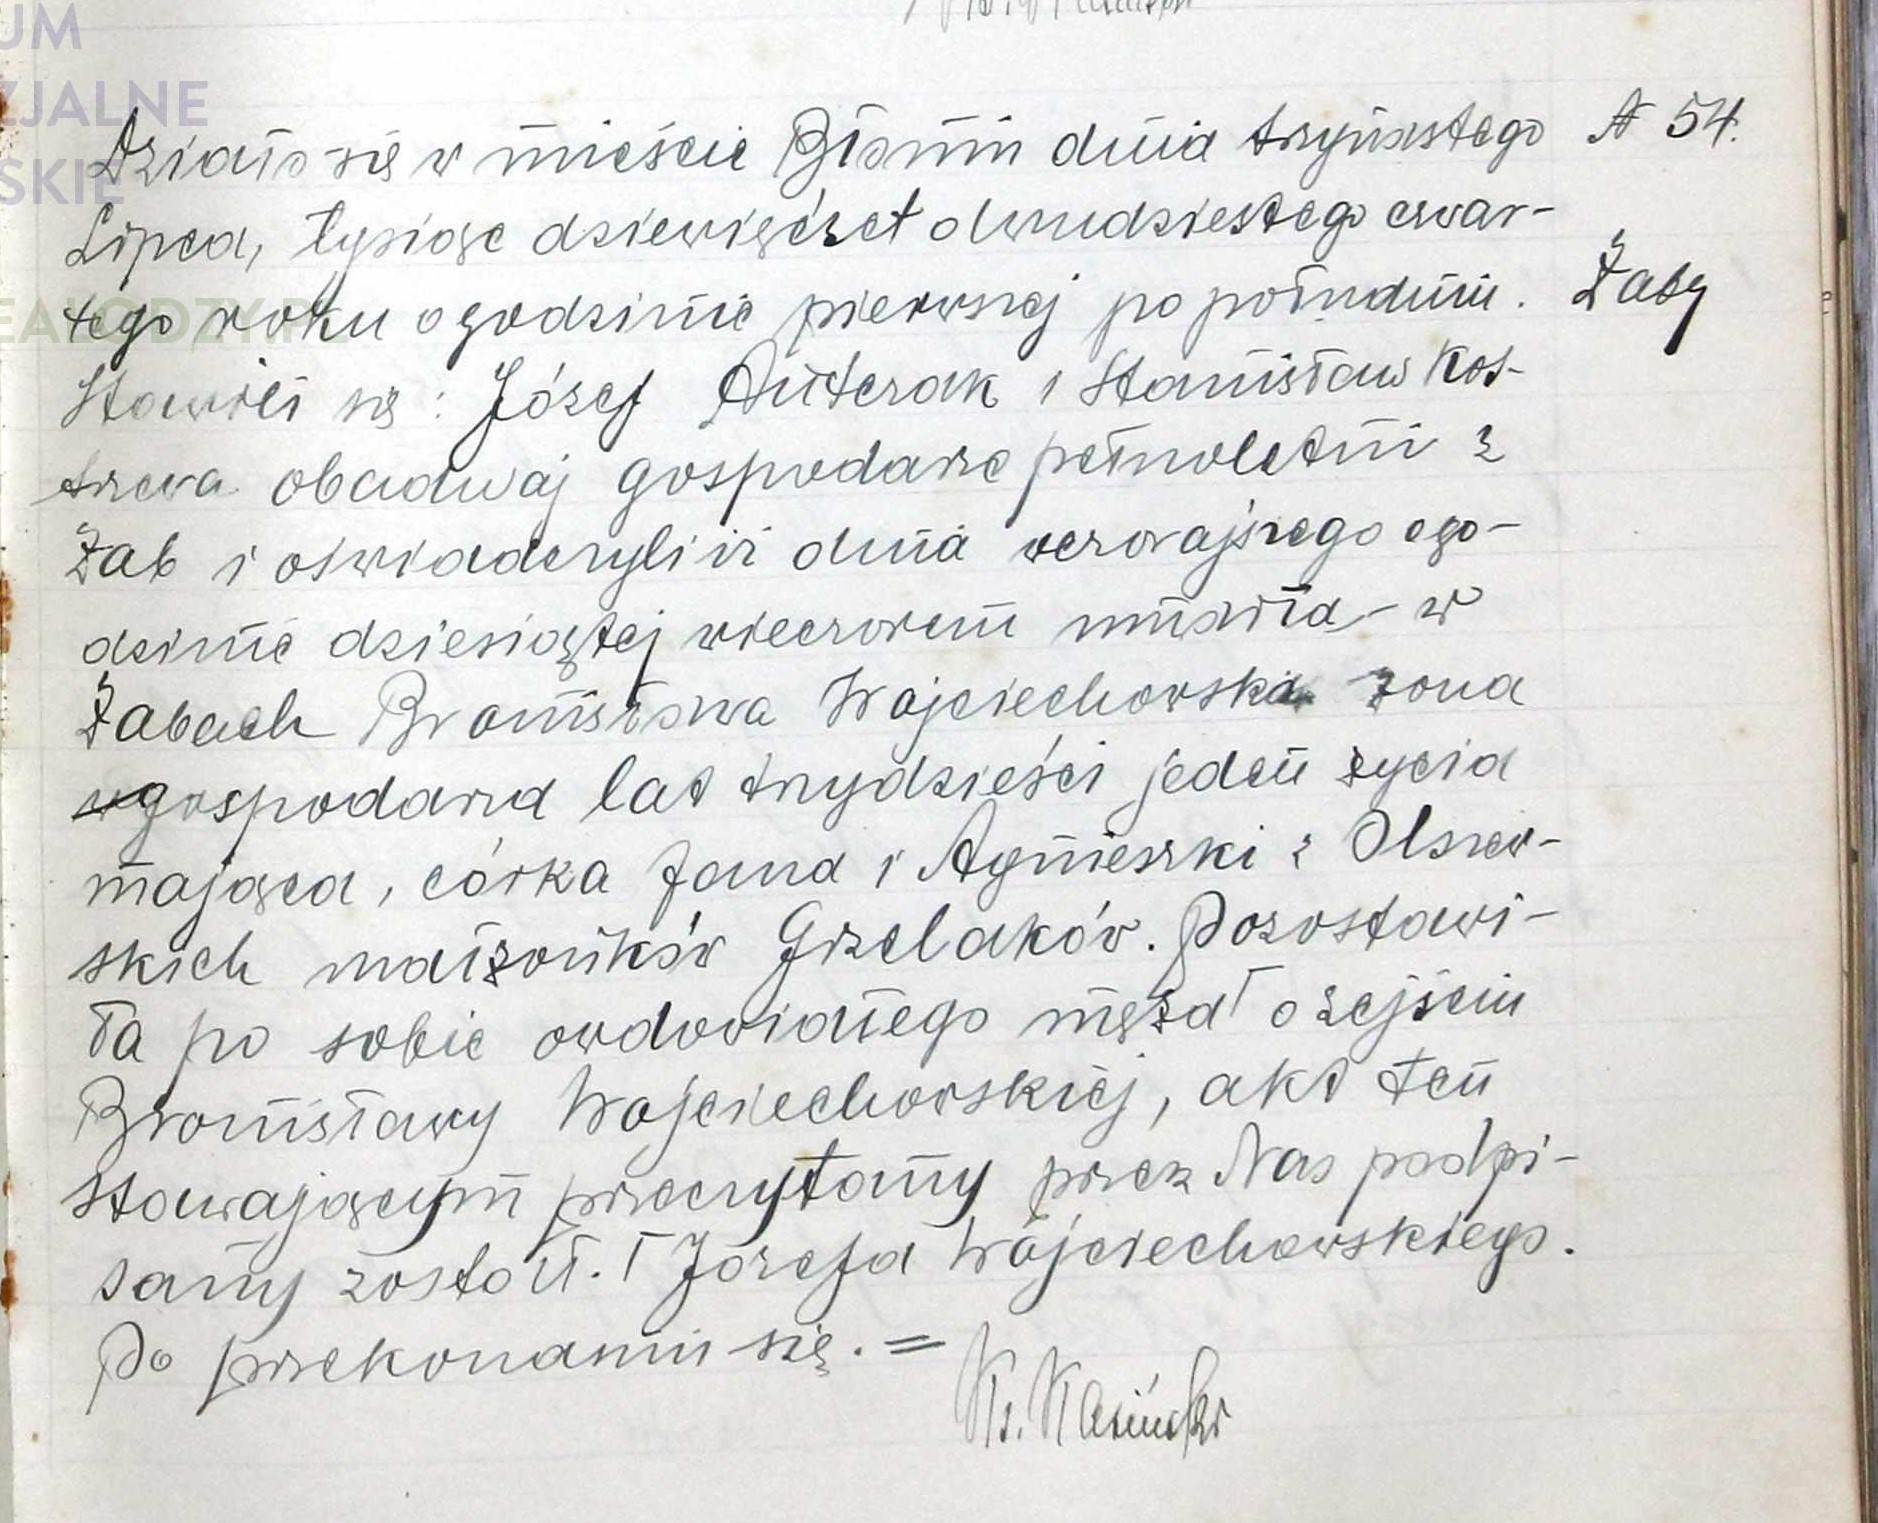 UM
ZJALNE
SKIE
EAŁODZY.PL
Działo się w mieście Błoniu dnia trzynastego № 54.
Lipca, tysiąc dziewięćset dwudziestego czwar-
tego roku o godzinie pierwszej po południu. Żaby
Stawili się: Józef Antczak i Stanisław Kos-
trzewa obadwaj gospodarze pełnoletni z
Żab i oświadczyli iż dnia wczorajszego o go-
dzinie dziesiątej wieczorem umarła w
Żabach Bronisława Wojciechowska żona
gospodarza lat trzydzieści jeden życia
mająca, córka Jana i Agnieszki z Olszew-
skich małżonków Grzelaków. Pozostawi-
ła po sobie owdowiałego męża Γ o zejściu
Bronisławy Wojciechowskiej, akt ten
stawającym przeczytany przez Nas podpi-
sany został. Γ Józefa Wojciechowskiego.
Po przekonaniu się. =
Ks.